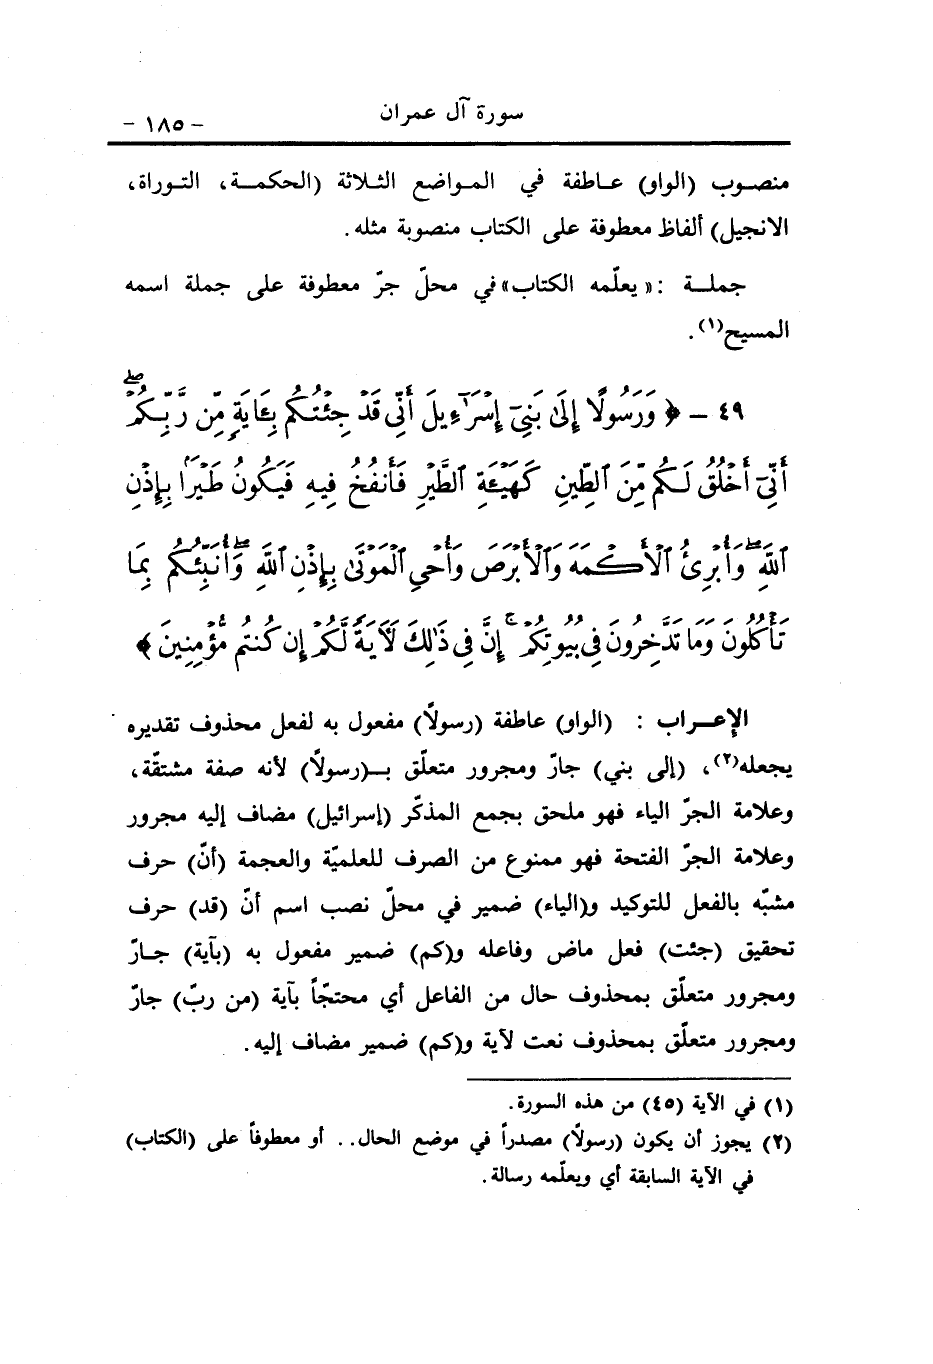 سورة آل عمران
- ١٨٥ -
منصوب (الواو) عاطفة في المواضع الثلاثة (الحكمة، التوراة،
الانجيل) ألفاظ معطوفة على الكتاب منصوبة مثله.
جملة : «يعلّمه الكتاب» في محلّ جرّ معطوفة على جملة اسمه
المسيح(١).
٤٩ - ﴿ وَرَسُولًا إِلَىٰ بَنِيٓ إِسْرَٰٓءِيلَ أَنِّي قَدْ جِئْتُكُم بِـَٔايَةٍ مِّن رَّبِّكُمْ ۖ
أَنِّيٓ أَخْلُقُ لَكُم مِّنَ ٱلطِّينِ كَهَيْـَٔةِ ٱلطَّيْرِ فَأَنفُخُ فِيهِ فَيَكُونُ طَيْرًۢا بِإِذْنِ
ٱللَّهِ ۖ وَأُبْرِئُ ٱلْأَكْمَهَ وَٱلْأَبْرَصَ وَأُحْيِ ٱلْمَوْتَىٰ بِإِذْنِ ٱللَّهِ ۖ وَأُنَبِّئُكُم بِمَا
تَأْكُلُونَ وَمَا تَدَّخِرُونَ فِي بُيُوتِكُمْ ۚ إِنَّ فِي ذَٰلِكَ لَـَٔايَةً لَّكُمْ إِن كُنتُم مُّؤْمِنِينَ ﴾
الإعراب : (الواو) عاطفة (رسولًا) مفعول به لفعل محذوف تقديره
يجعله(٢)، (إلى بني) جارّ ومجرور متعلّق بـ(رسولًا) لأنه صفة مشتقّة،
وعلامة الجرّ الياء فهو ملحق بجمع المذكّر (إسرائيل) مضاف إليه مجرور
وعلامة الجرّ الفتحة فهو ممنوع من الصرف للعلميّة والعجمة (أنّ) حرف
مشبّه بالفعل للتوكيد و(الياء) ضمير في محلّ نصب اسم أنّ (قد) حرف
تحقيق (جئت) فعل ماض وفاعله و(كم) ضمير مفعول به (بآية) جارّ
ومجرور متعلّق بمحذوف حال من الفاعل أي محتجّاً بآية (من ربّ) جارّ
ومجرور متعلّق بمحذوف نعت لآية و(كم) ضمير مضاف إليه.
(١) في الآية (٤٥) من هذه السورة.
(٢) يجوز أن يكون (رسولًا) مصدراً في موضع الحال.. أو معطوفاً على (الكتاب)
في الآية السابقة أي ويعلّمه رسالة.